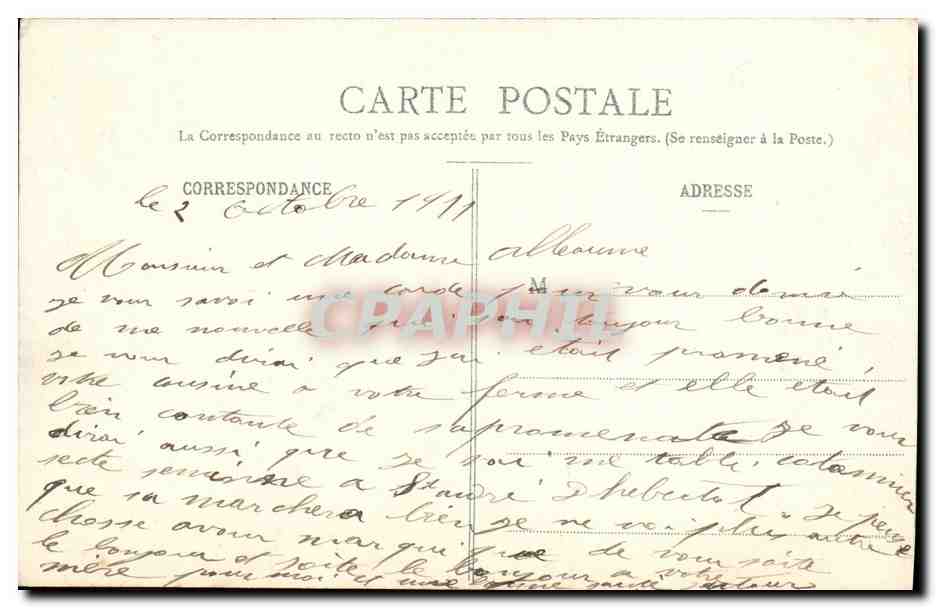 CARTE POSTALE
La Correspondance au recto n'est pas acceptée par tous les Pays Étrangers. (Se renseigner à la Poste.)
CORRESPONDANCE
ADRESSE
le 2 octobre 1911
Monsieur et Madame
M
je vous savoi une carde pour vous donné
de me nouvelle qui son toujour bonne
je vous dirai que jai etait promené
votre cusine a votre ferme et elle etait
bien contante de sa promenate je vous
dirai aussi que je sui me table
secte semaine a St andré Dhebertot je pense
que sa marchera bien je ne voi plus autre
chosse a vour marqui que de vous soite
le bonjour et soite le bonjour a votre
mère pour moi et une bonne santé
CPAPHIL